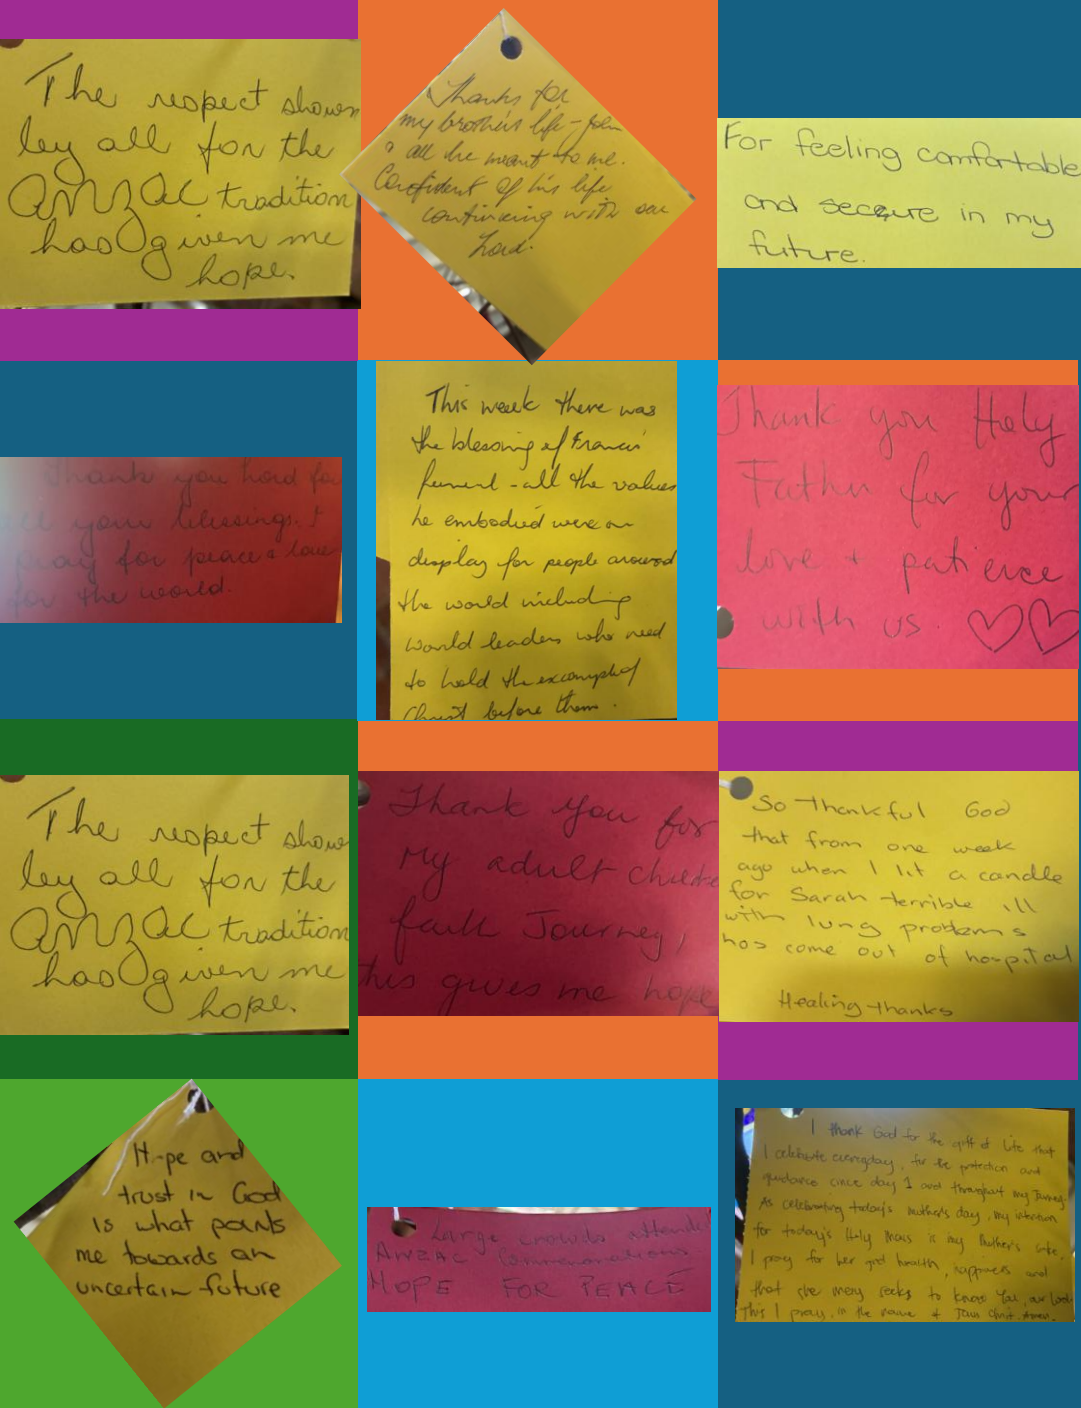 The respect shown
by all for the
ANZAC tradition
has given me
hope.
Thanks for
my brother's life - John
& all he meant to me.
Confident of his life
continuing with our
Lord.
For feeling comfortable
and secure in my
future.
Thank you Lord for
all your blessings. I
pray for peace & love
for the world.
This week there was
the blessing of Francis'
funeral - all the values
he embodied were on
display for people around
the world including
world leaders who need
to hold the example of
Christ before them.
Thank you Holy
Father for your
love + patience
with us. ♡♡
The respect show
by all for the
ANZAC tradition
has given me
hope.
Thank you for
my adult
faith Journey,
this gives me hope
So thankful God
that from one week
ago when I lit a candle
for Sarah terrible ill
with lung problems
has come out of hospital
Healing thanks
Hope and
trust in God
is what points
me towards an
uncertain future
Large crowds attend
ANZAC Commemorations
HOPE FOR PEACE
I thank God for the gift of life that
I celebrate everyday, for the protection and
guidance since day 1 and throughout my Journey.
As celebrating today's mother's day, my intention
for today's Holy Mass is my Mother's sake.
I pray for her good health, happiness and
that she may seeks to know You, our Lord.
This I pray, in the name of Jesus Christ. Amen.